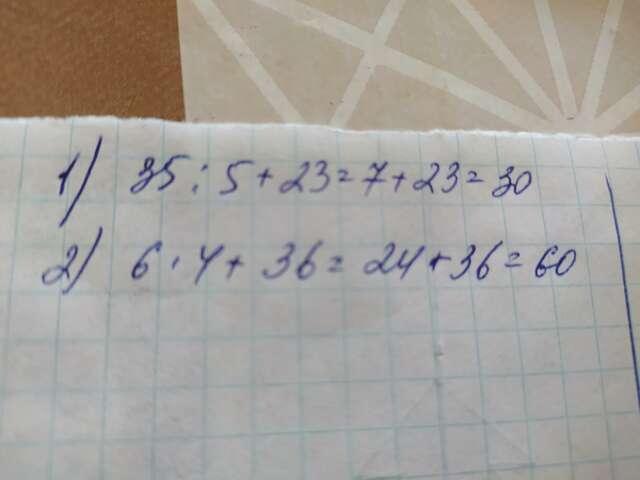 1) 35 : 5 + 23 = 7 + 23 = 30
2) 6 · 4 + 36 = 24 + 36 = 60